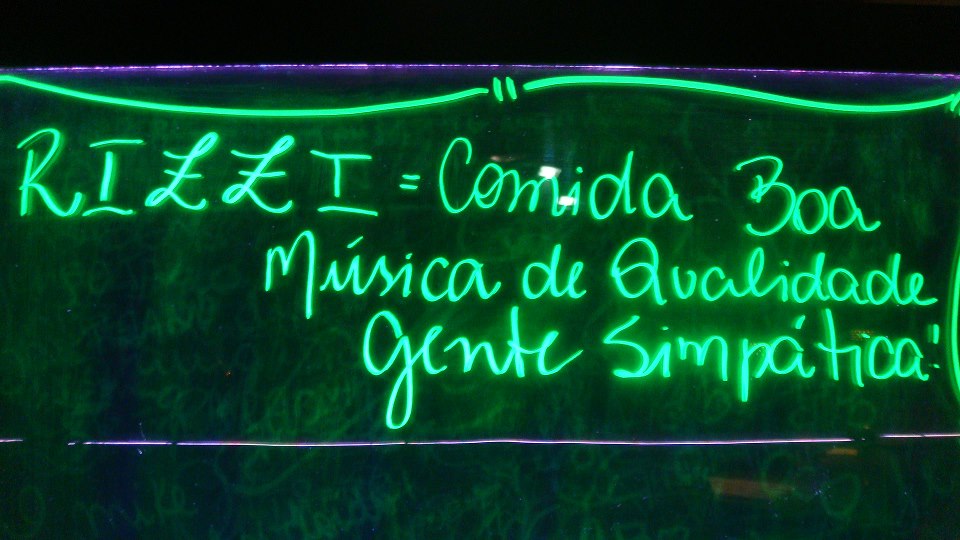 RIZZI = Comida Boa
Música de Qualidade
Gente Simpática!!